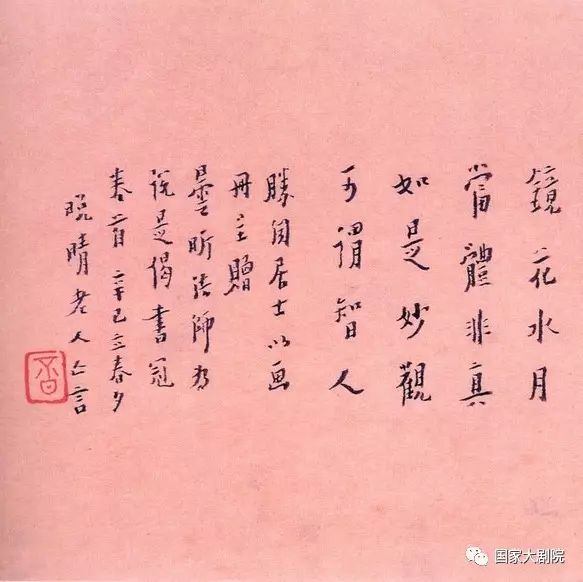 鏡花水月
當體非真
如是妙觀
可謂智人
勝居士以画
冊贈
曇昕法師为
說是偈書冠
卷首 辛巳立春夕
晚晴老人亡言
国家大剧院